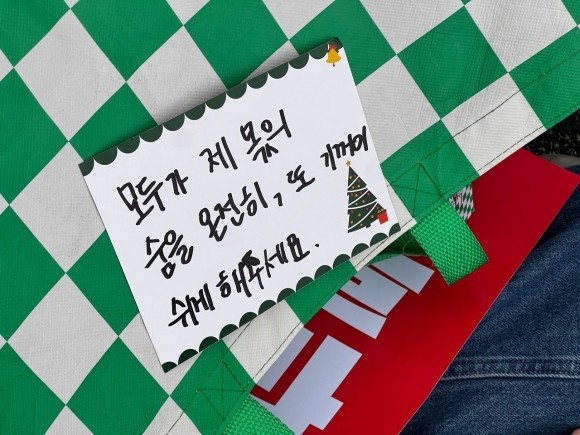 모두가 제 몫의
숨을 온전히, 또 기꺼이
쉬게 해주세요.